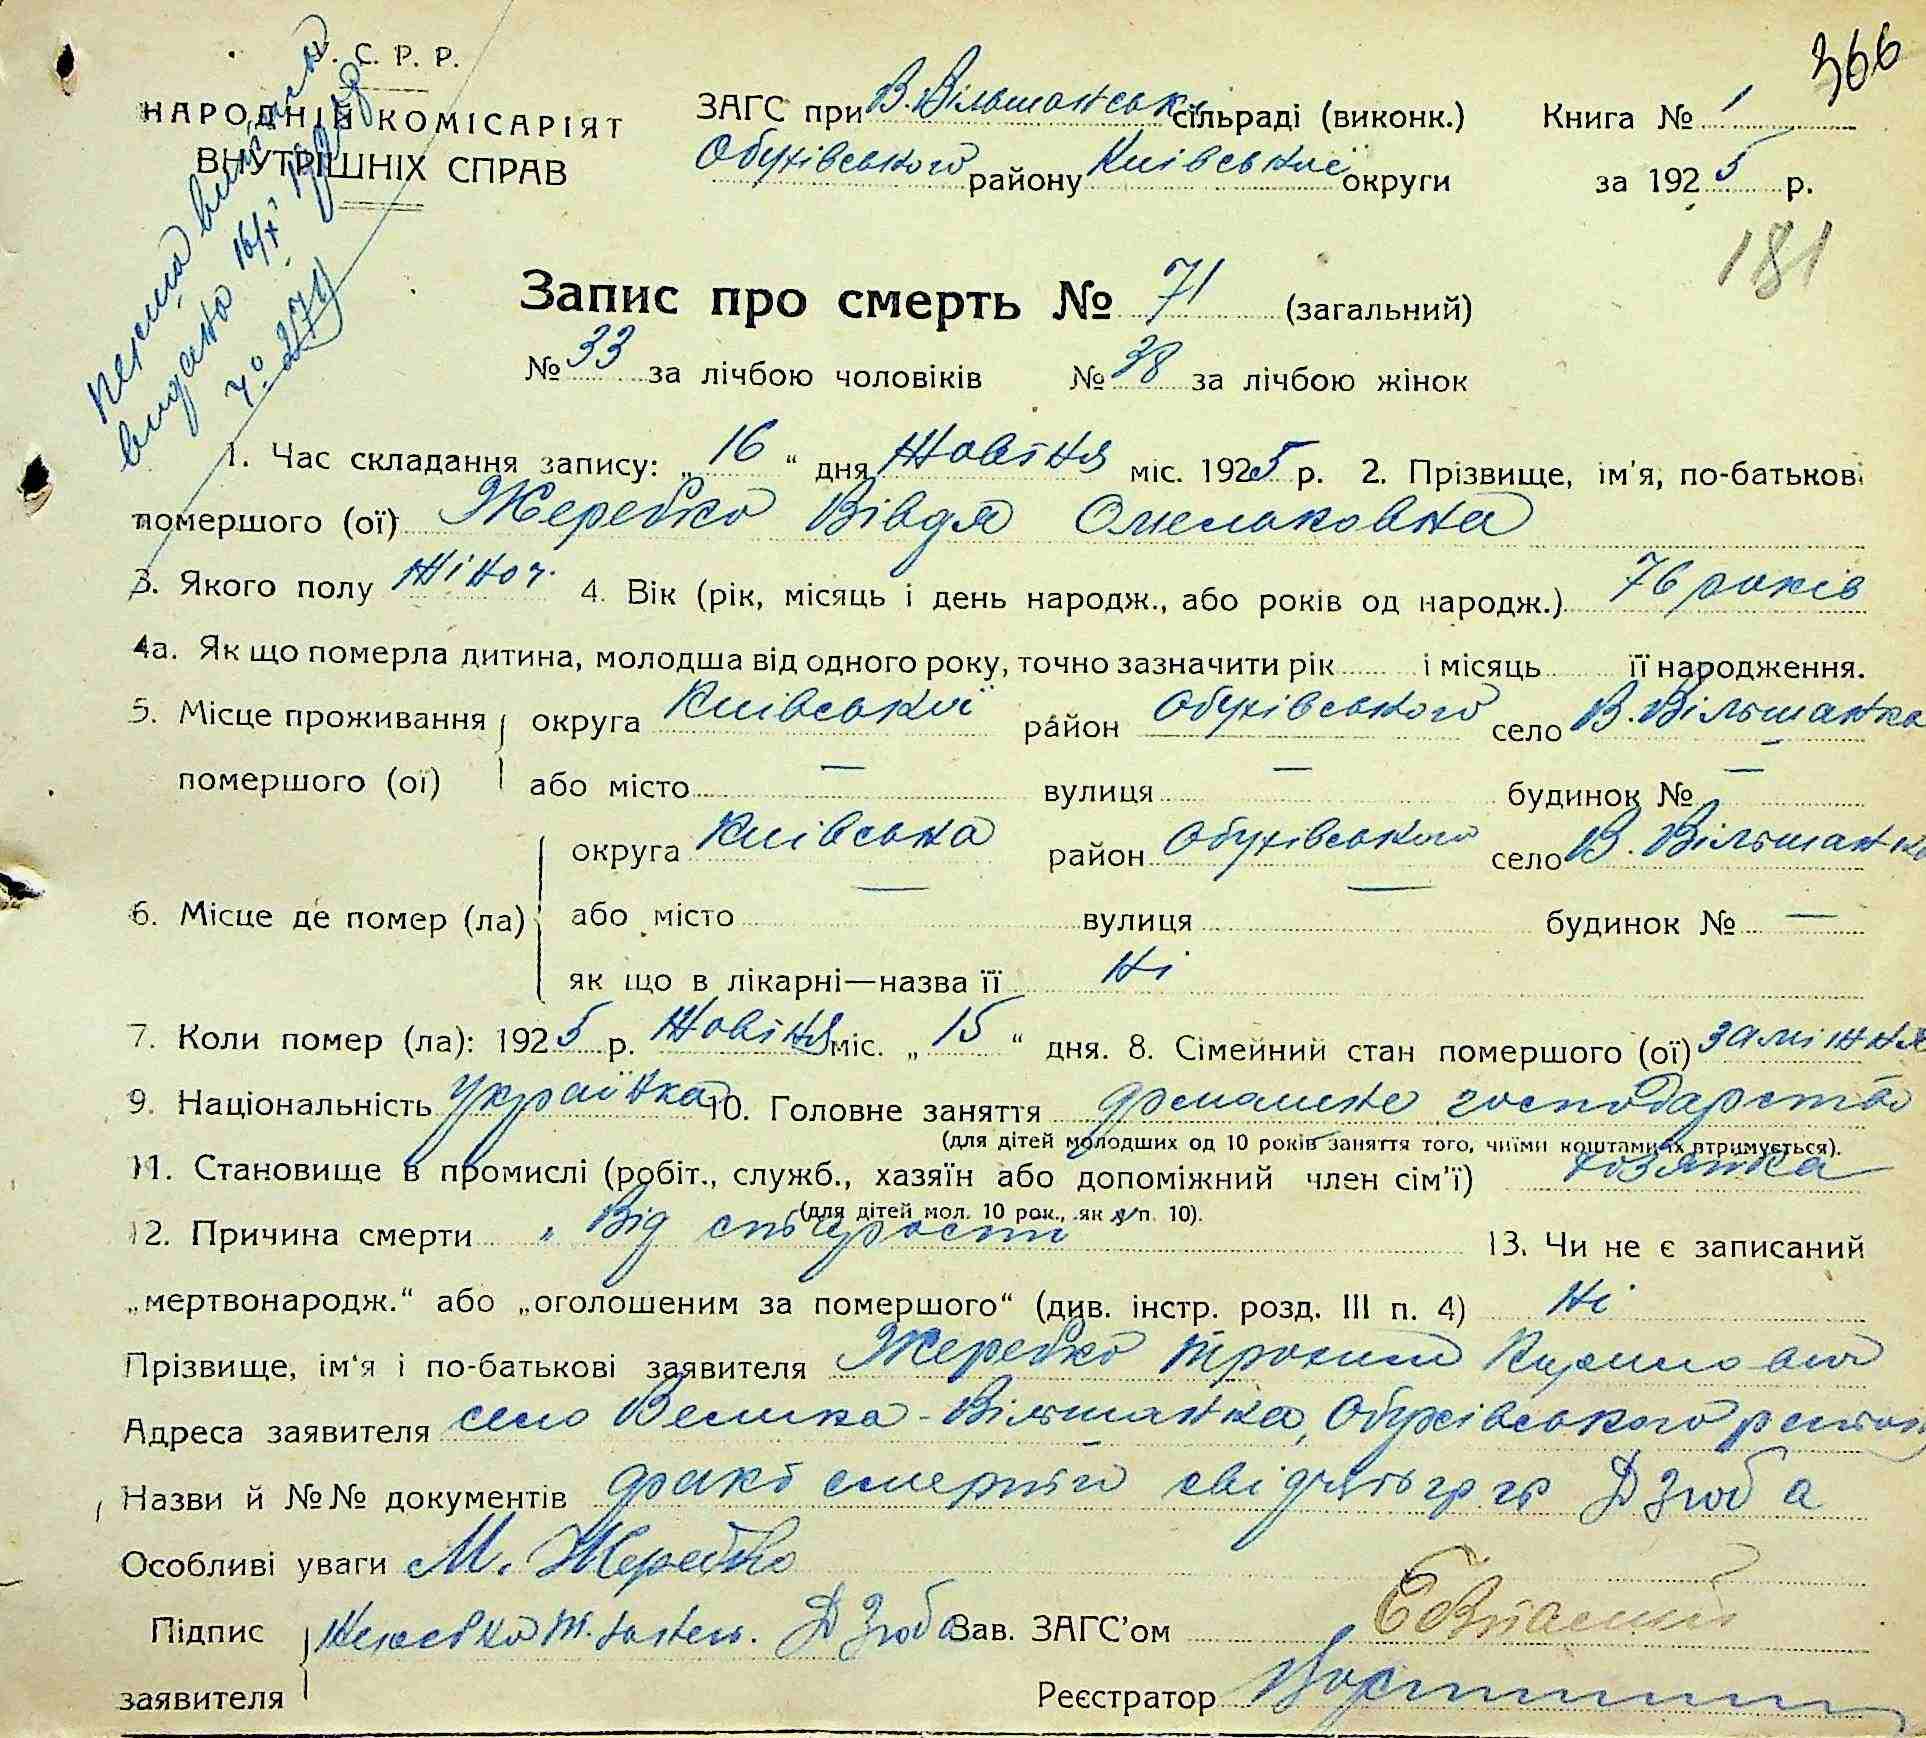 366
С. Р. Р.
НАРОДНІЙ КОМІСАРІЯТ
ВНУТРІШНІХ СПРАВ
перша виписка
видана 16/X
№ 271
ЗАГС при В. Вільшанськ сільраді (виконк.) Книга № 1
Обухівського району Київської округи за 1925 р.
181
Запис про смерть № 71 (загальний)
№ 33 за лічбою чоловіків № 38 за лічбою жінок
1. Час складання запису: „16“ дня Жовтня міс. 1925 р. 2. Прізвище, ім'я, по-батькові
помершого (ої) Жеребко Вівдя Омельковна
3. Якого полу жіноч. 4. Вік (рік, місяць і день народж., або років од народж.) 76 років
4а. Як що померла дитина, молодша від одного року, точно зазначити рік і місяць її народження.
5. Місце проживання округа Київської район Обухівського село В. Вільшанка
помершого (ої) або місто — вулиця — будинок № —
округа Київська район Обухівського село В. Вільшанка
6. Місце де помер (ла) або місто — вулиця — будинок № —
як що в лікарні—назва її Ні
7. Коли помер (ла): 1925 р. Жовтня міс. „15“ дня. 8. Сімейний стан помершого (ої) заміжня
9. Національність Українка 10. Головне заняття домашнє господарство
(для дітей молодших од 10 років заняття того, чиїми коштами їх втримується).
11. Становище в промислі (робіт., служб., хазяїн або допоміжний член сім'ї) хозяйка
(для дітей мол. 10 рок., як у п. 10).
12. Причина смерти Від старости 13. Чи не є записаний
„мертвонародж.“ або „оголошеним за помершого“ (див. інстр. розд. III п. 4) Ні
Прізвище, ім'я і по-батькові заявителя Жеребко Трохим
Адреса заявителя село Велика-Вільшанка, Обухівського району
Назви й №№ документів факт смерти свідчать гр гр Дзюба
Особливі уваги М. Жеребко
Підпис Дзюба Зав. ЗАГС'ом
заявителя Реєстратор